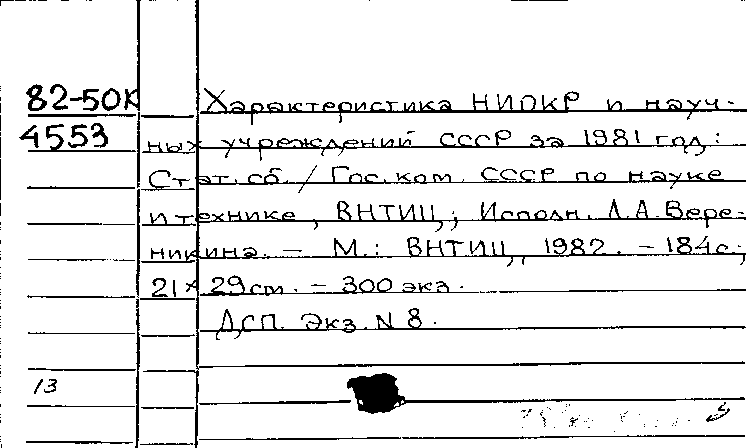 82-50К Характеристика НИОКР и науч-
4553 ных учреждений СССР за 1981 год:
Стат. сб. / Гос. ком. СССР по науке
и технике, ВНТИЦ; Исполн. Л.А. Вере-
никина. – М.: ВНТИЦ, 1982. – 184с.;
21× 29см. – 300 экз.
ДСП. Экз. N 8.
13